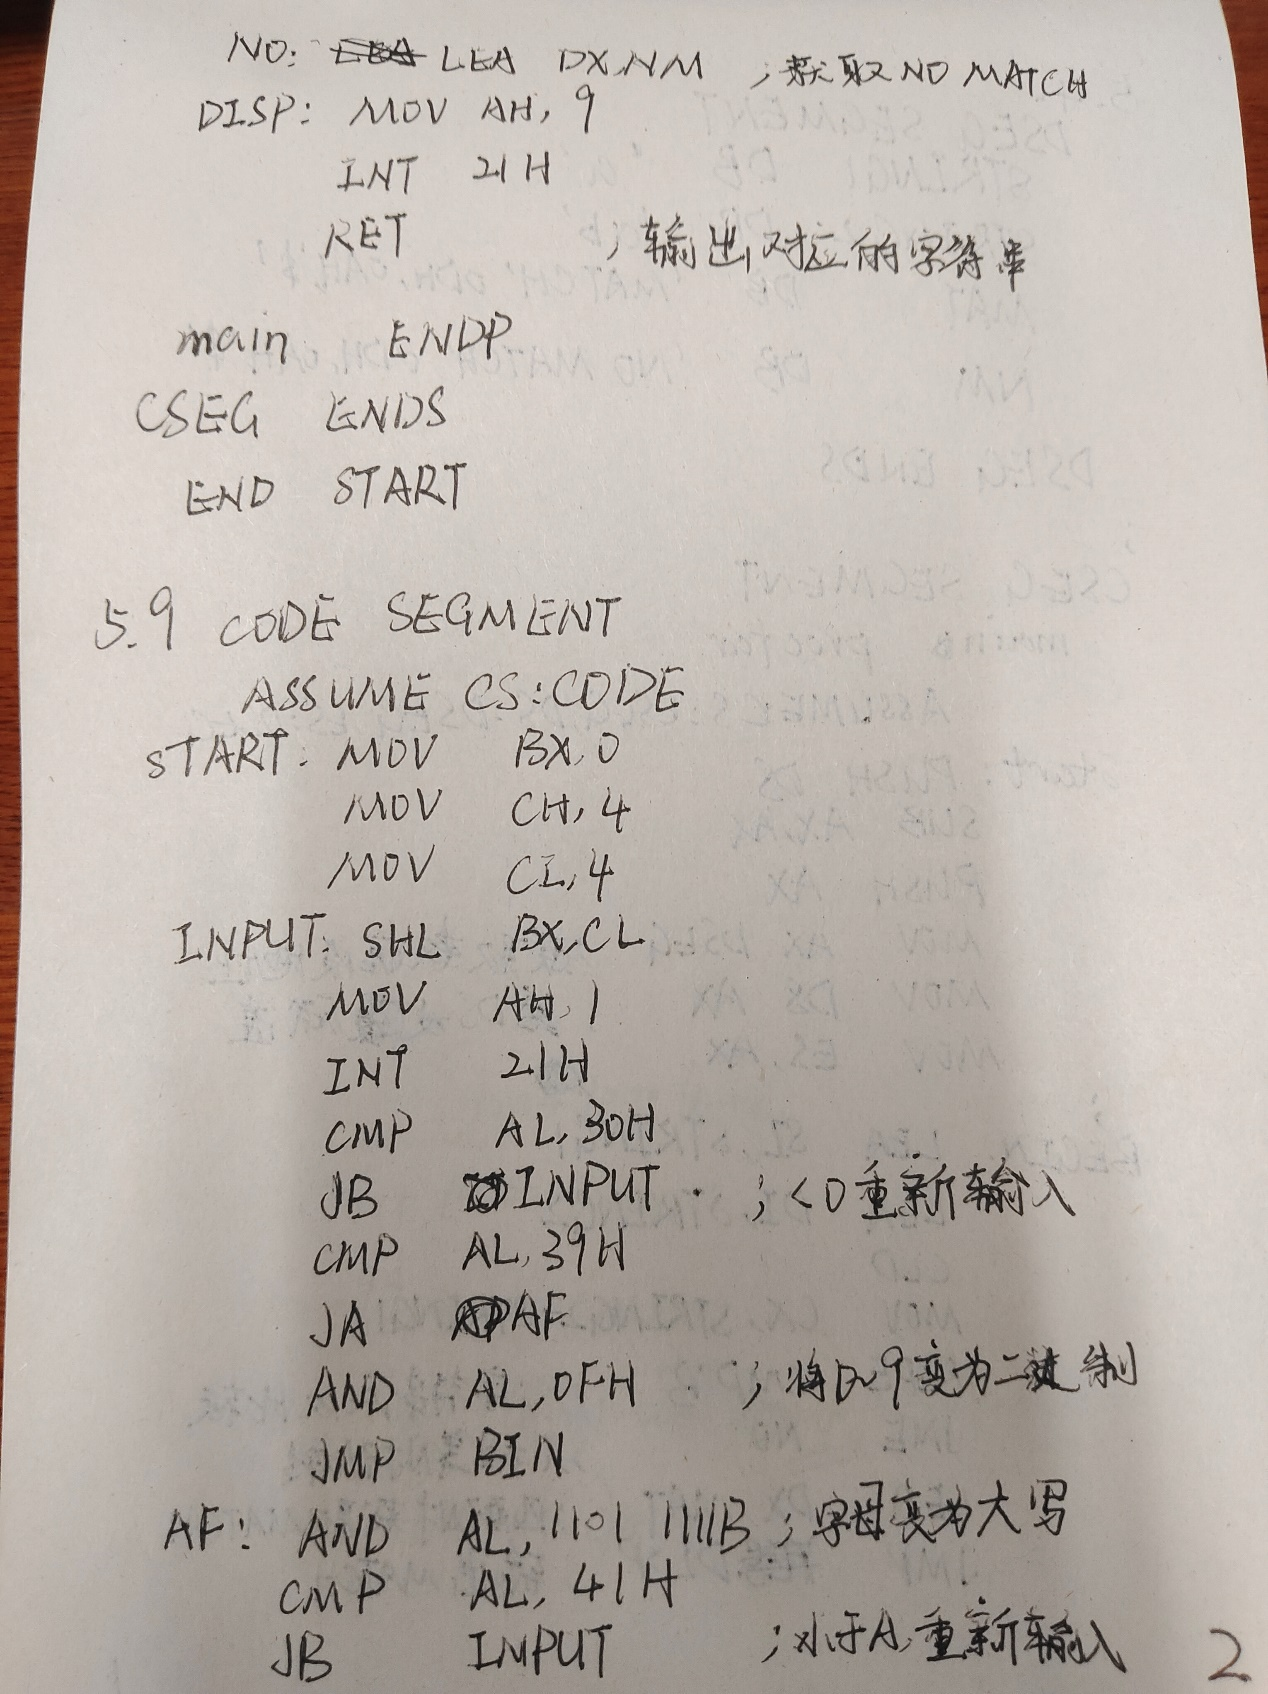 NO: LEA DX,NM ;获取NO MATCH
DISP: MOV AH, 9
INT 21H
RET ;输出对应的字符串
main ENDP
CSEG ENDS
END START
5.9 CODE SEGMENT
ASSUME CS:CODE
START: MOV BX,0
MOV CH,4
MOV CL,4
INPUT: SHL BX,CL
MOV AH,1
INT 21H
CMP AL,30H
JB INPUT ;<0重新输入
CMP AL,39H
JA AF
AND AL,0FH ;将0~9变为二进制
JMP BIN
AF: AND AL,1101 1111B ;字母变为大写
CMP AL, 41H
JB INPUT ;小于A,重新输入
2